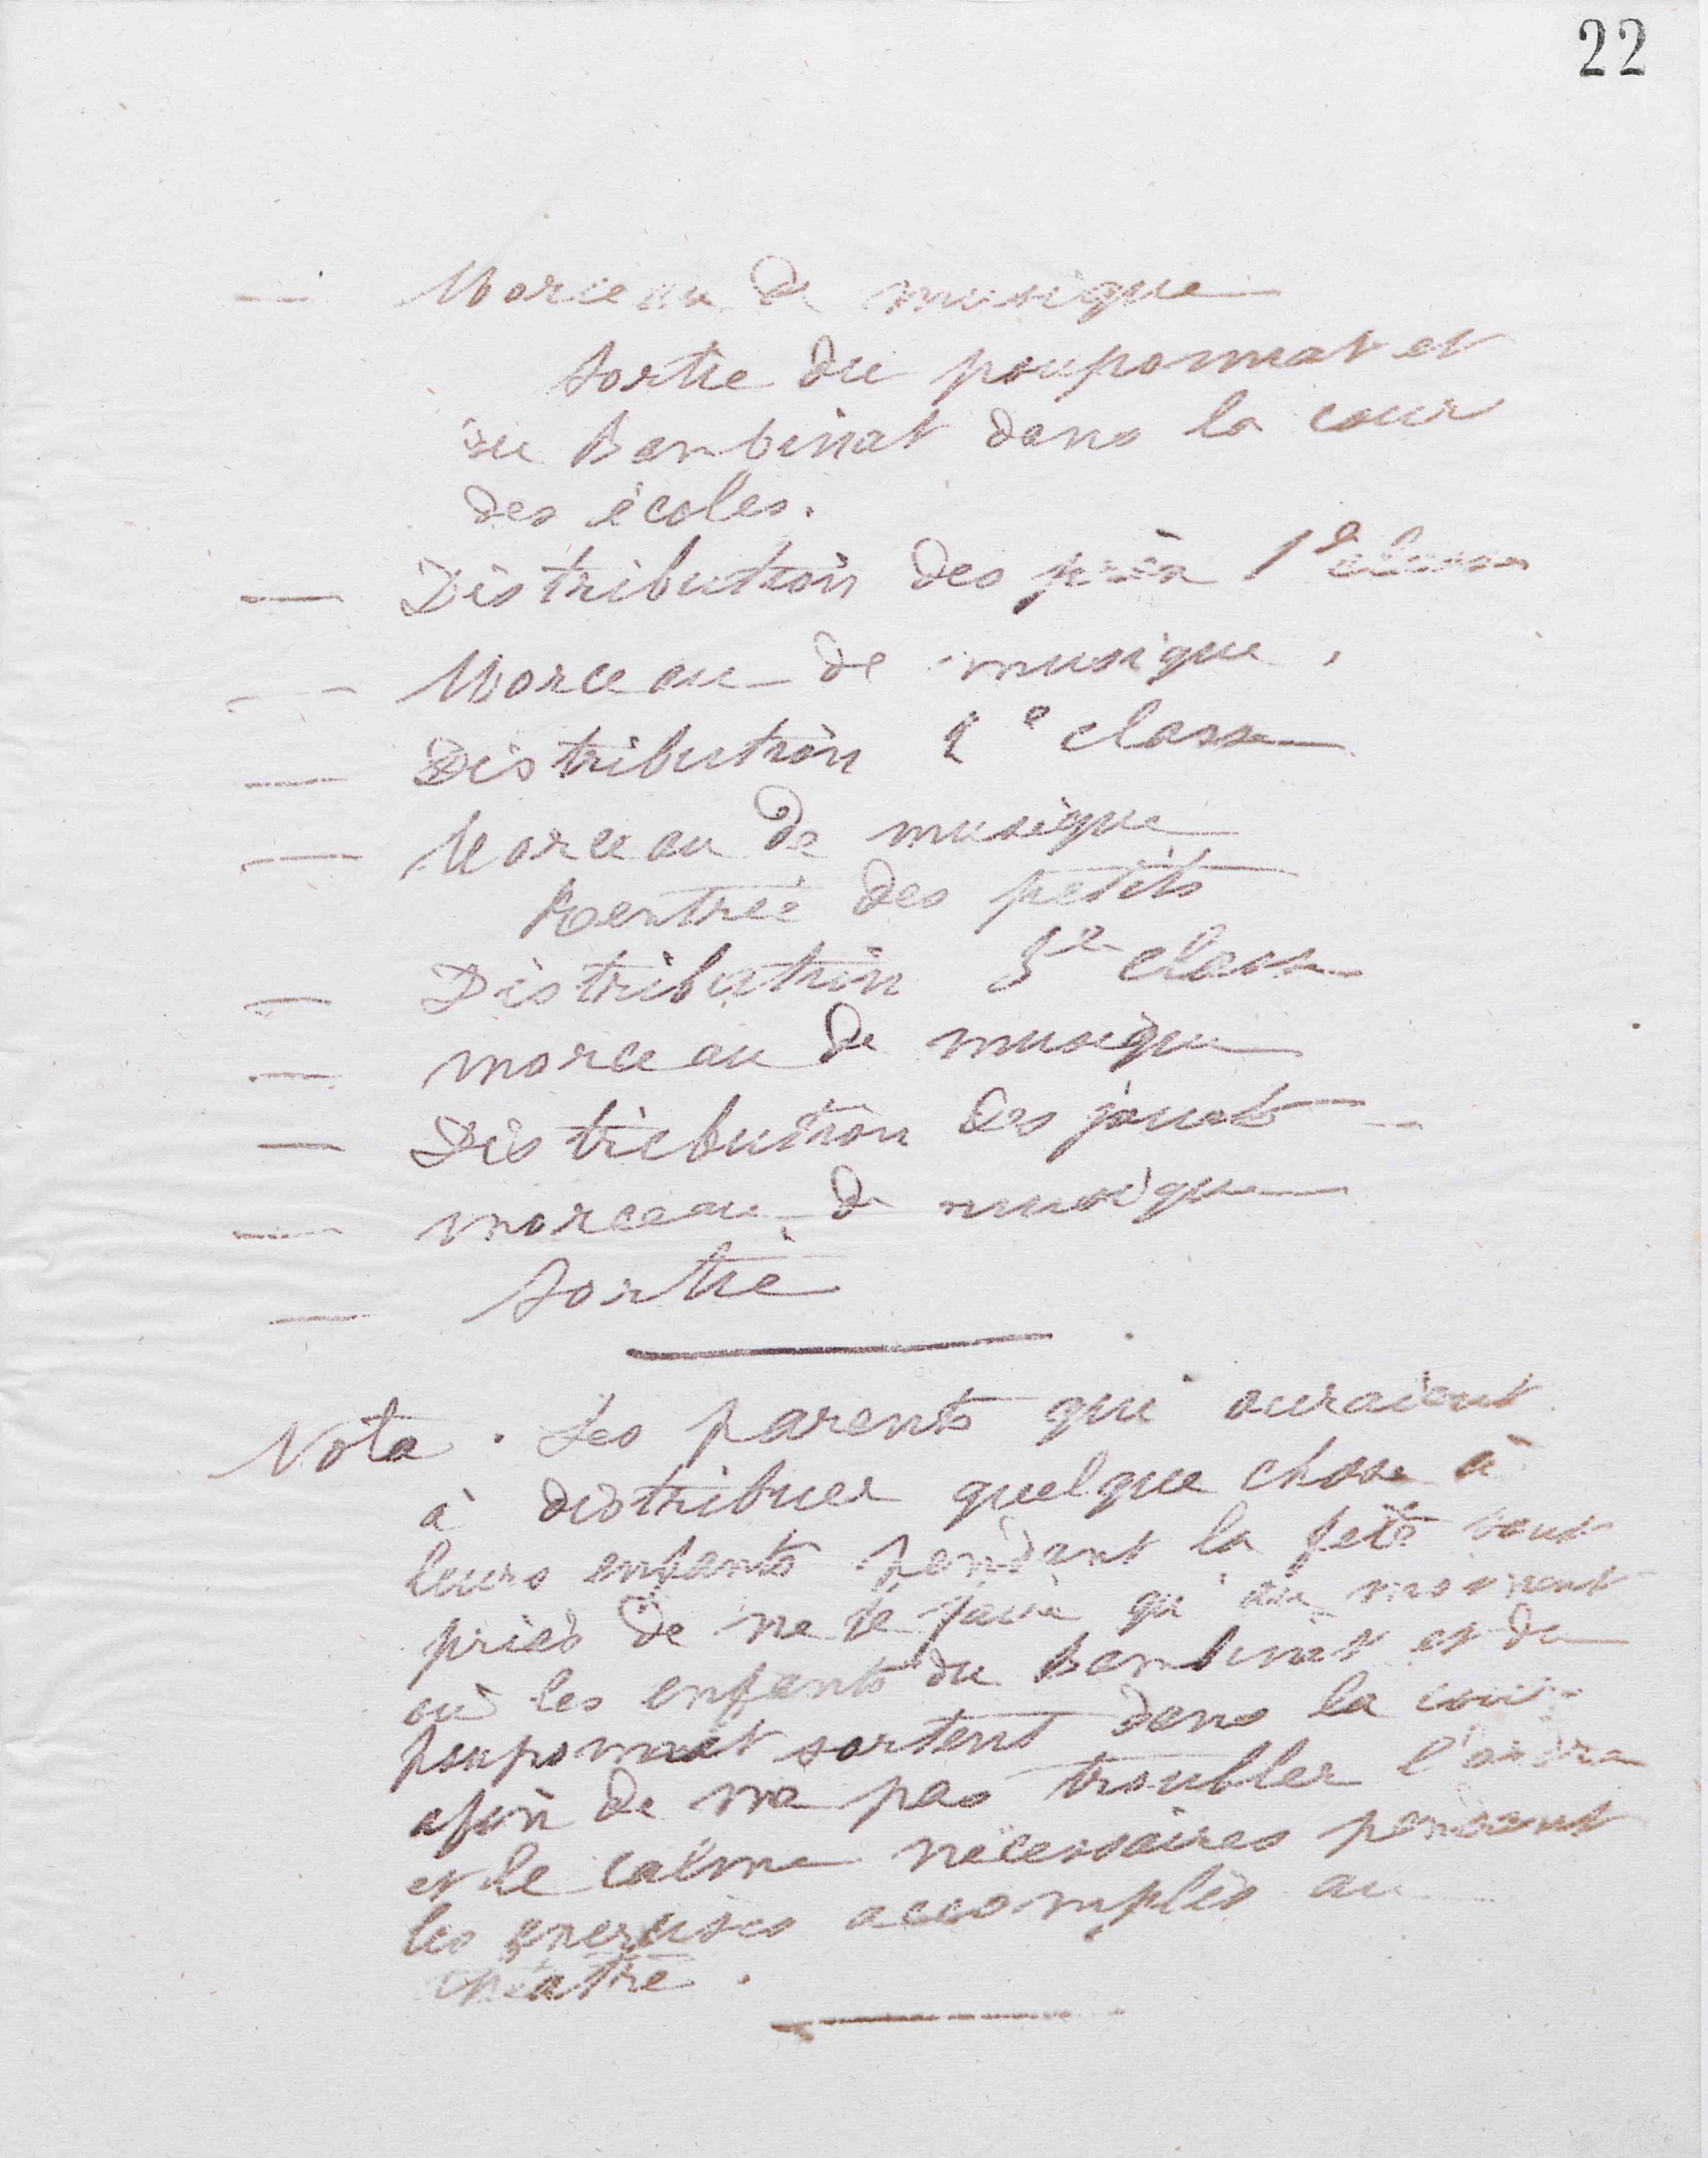 22
— Morceau de musique
Sortie du pouponnat et
du Bambinat dans la cour
des écoles.
— Distribution des prix 1e classe
— Morceau de musique.
— Distribution 2e classe
— Morceau de musique
Rentrée des petits
— Distribution 3e classe
— morceau de musique
— Distribution des jouets —
— morceau de musique
— Sortie
Nota. Les parents qui auraient
à distribuer quelque chose à
leurs enfants pendant la fête sont
priés de ne le faire qu'au moment
où les enfants du Bambinat et du
pouponnat sortent dans la cour
afin de ne pas troubler l'ordre
et le calme nécessaires pendant
les exercices accomplis au
théatre.